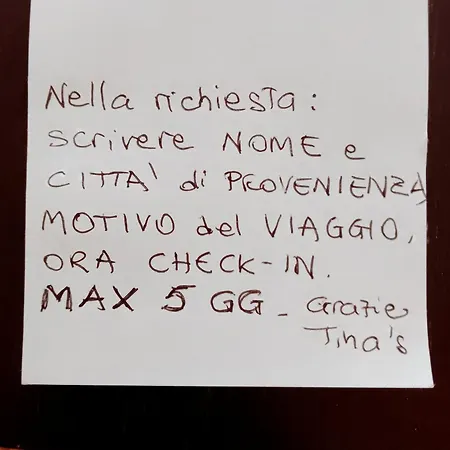 Nella richiesta:
scrivere NOME e
CITTA' di PROVENIENZA,
MOTIVO del VIAGGIO,
ORA CHECK-IN.
MAX 5 GG - Grazie
Tina's